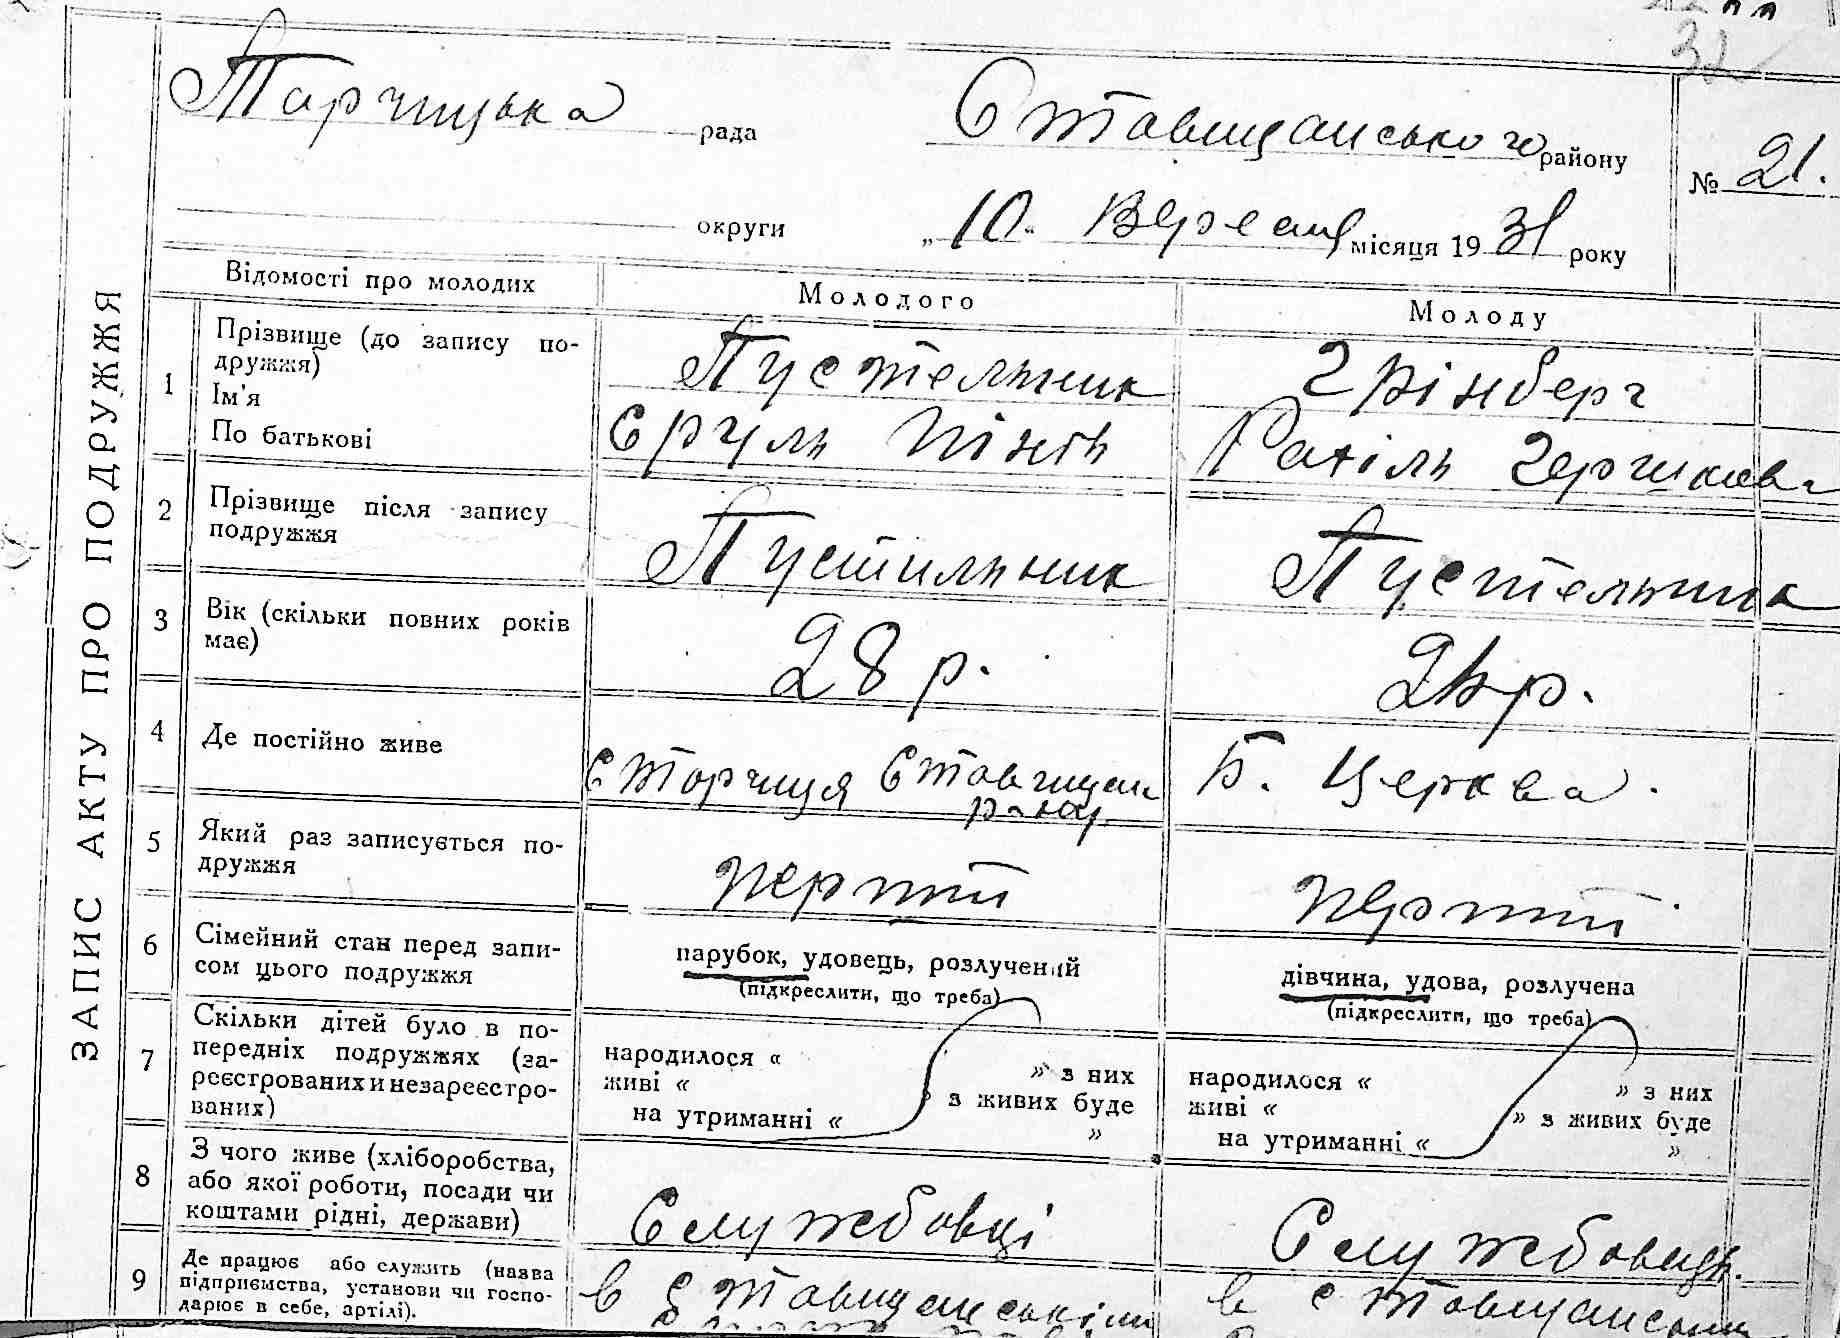 32
Тарчицька рада
Ставищанського району
№ 21.
округи
„ 10 “ Вересня місяця 19 31 року
ЗАПИС АКТУ ПРО ПОДРУЖЖЯ
Відомості про молодих
Молодого
Молоду
1
Прізвище (до запису по-
дружжя)
Ім'я
По батькові
Пустельник
Грінберг
Сруль Пінів
Рахіль Гершкова
2
Прізвище після запису
подружжя
Пустильник
Пустельник
3
Вік (скільки повних років
має)
28 р.
р.
4
Де постійно живе
С Торчиця Ставищан
Б. Церква.
5
Який раз записується по-
дружжя
перший
перший
6
Сімейний стан перед запи-
сом цього подружжя
парубок, удовець, розлучений
(підкреслити, що треба)
дівчина, удова, розлучена
(підкреслити, що треба)
7
Скільки дітей було в по-
передніх подружжях (за-
реєстрованих и незареєстро-
ваних)
народилося « » з них
живі « » з живих буде
на утриманні « »
народилося « » з них
живі « » з живих буде
на утриманні « »
8
З чого живе (хліборобства,
або якої роботи, посади чи
коштами рідні, держави)
Службовці
Службовець.
9
Де працює або служить (назва
підприємства, установи чи госпо-
дарює в себе, артілі).
в Ставищанськім
в Ставищанськім